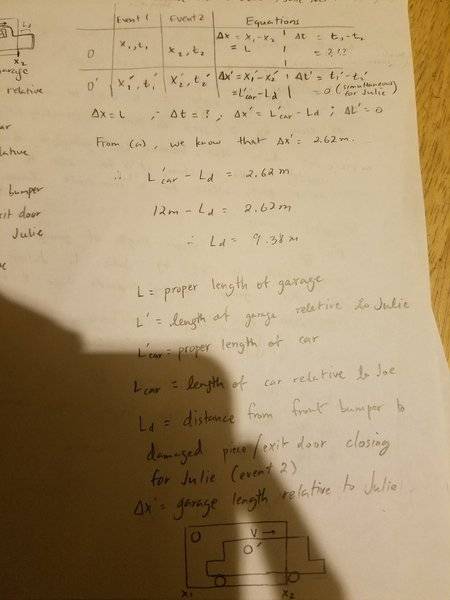 x₂
garage
relative
relative
bumper
exit door
Julie
Event 1 Event 2 Equations
O x₁, t₁ x₂, t₂ Δx = x₁-x₂ = L Δt = t₁-t₂ = ???
O' x₁', t₁' x₂', t₂' Δx' = x₁'-x₂' = L'car-Ld Δt' = t₁'-t₂' = 0 (simultaneous for Julie)
Δx = L ; Δt = ? ; Δx' = L'car - Ld ; Δt' = 0
From (a), we know that Δx' = 2.62m.
∴ L'car - Ld = 2.62m
12m - Ld = 2.62m
∴ Ld = 9.38m
L = proper length of garage
L' = length of garage relative to Julie
L'car = proper length of car
Lcar = length of car relative to Joe
Ld = distance from front bumper to
damaged piece/exit door closing
for Julie (event 2)
Δx' = garage length relative to Julie
O V →
O'
x₁ x₂